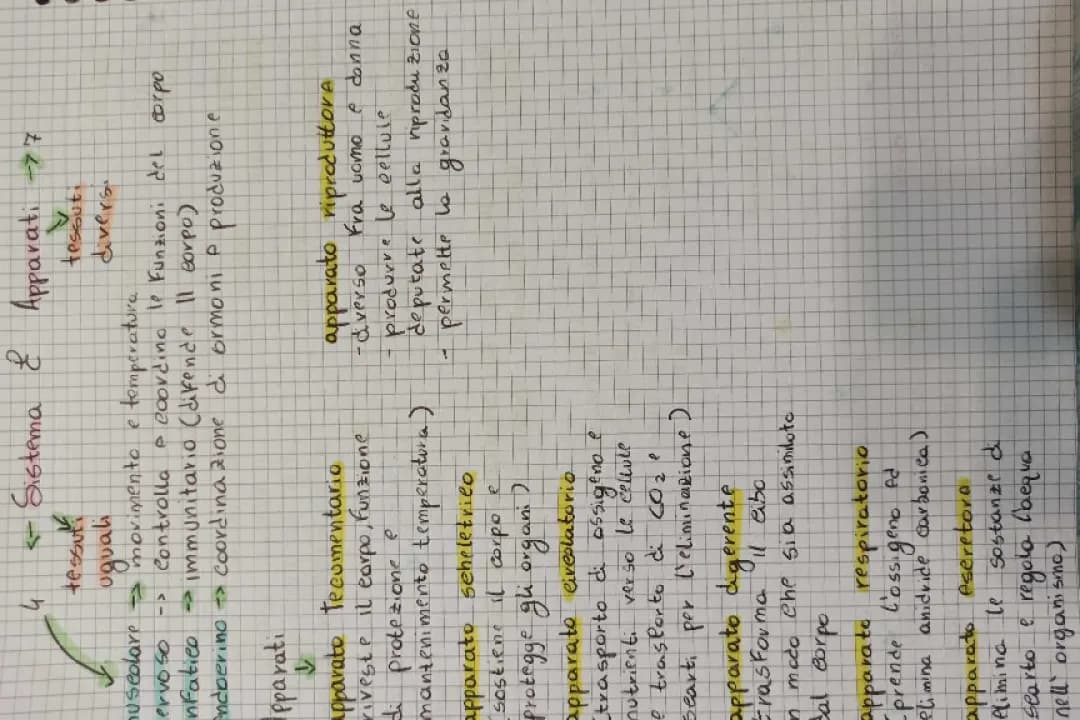 4 <- Sistema & Apparati -> 7
tessuti uguali
tessuti diversi
muscolare -> movimento e temperatura
nervoso -> controlla e coordina le funzioni del corpo
linfatico -> immunitario (difende il corpo)
endocrino -> coordinazione di ormoni e produzione
Apparati
apparato tecumentario
riveste il corpo, funzione
di protezione e
mantenimento temperatura)
apparato scheletrico
(sostiene il corpo e
protegge gli organi)
apparato circolatorio
(trasporto di ossigeno e
nutrienti verso le cellule
e trasporto di CO2 e
scarti per l'eliminazione)
apparato digerente
trasforma il cibo
in modo che sia assimilato
dal corpo
apparato respiratorio
(prende l'ossigeno ed
elimina anidride carbonica)
apparato escretore
elimina le sostanze di
scarto e regola l'acqua
nell'organismo)
apparato riproduttore
- diverso fra uomo e donna
- produrre le cellule
deputate alla riproduzione
- permette la gravidanza